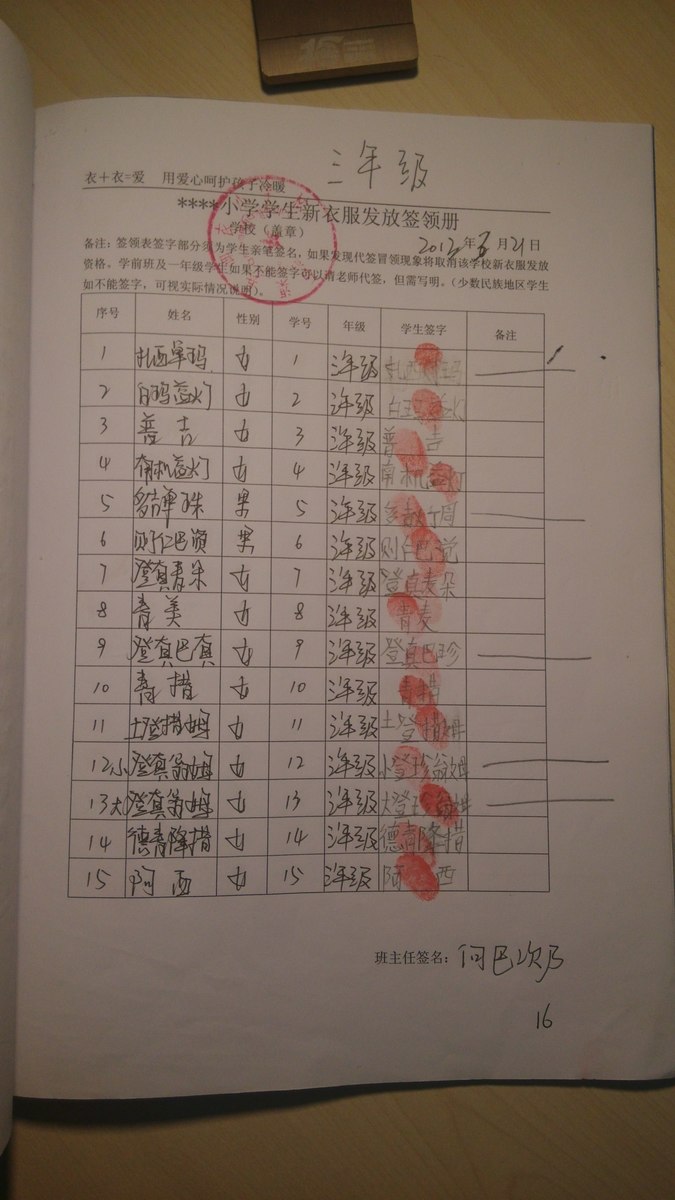 三年级
衣+衣=爱 用爱心呵护孩子冷暖
****小学学生新衣服发放签领册
学校（盖章）
年 月21日
备注：签领表签字部分须为学生亲笔签名，如果发现代签冒领现象将取消该学校新衣服发放
资格。学前班及一年级学生如果不能签字可以请老师代签，但需写明。（少数民族地区学生
如不能签字，可视实际情况说明）。
序号 姓名 性别 学号 年级 学生签字 备注
1 扎西卓玛 女 1 三年级 扎西 玛
2 白玛益灯 女 2 三年级 白玛益灯
3 普吉 女 3 三年级 普吉
4 南机益灯 女 4 三年级 南机益灯
5 男 5 三年级
6 则仁巴 男 6 三年级 则仁巴
7 登真青朵 女 7 三年级 登真青朵
8 青美 女 8 三年级 青麦
9 登真巴真 女 9 三年级 登真巴珍
10 青措 女 10 三年级 青措
11 土登措姆 女 11 三年级 土登措姆
12 小登真翁姆 女 12 三年级 小登珍翁姆
13 大登真翁姆 女 13 三年级 大登 翁姆
14 德青降措 女 14 三年级 德青降措
15 阿西 女 15 三年级 阿西
班主任签名：何巴次乃
16